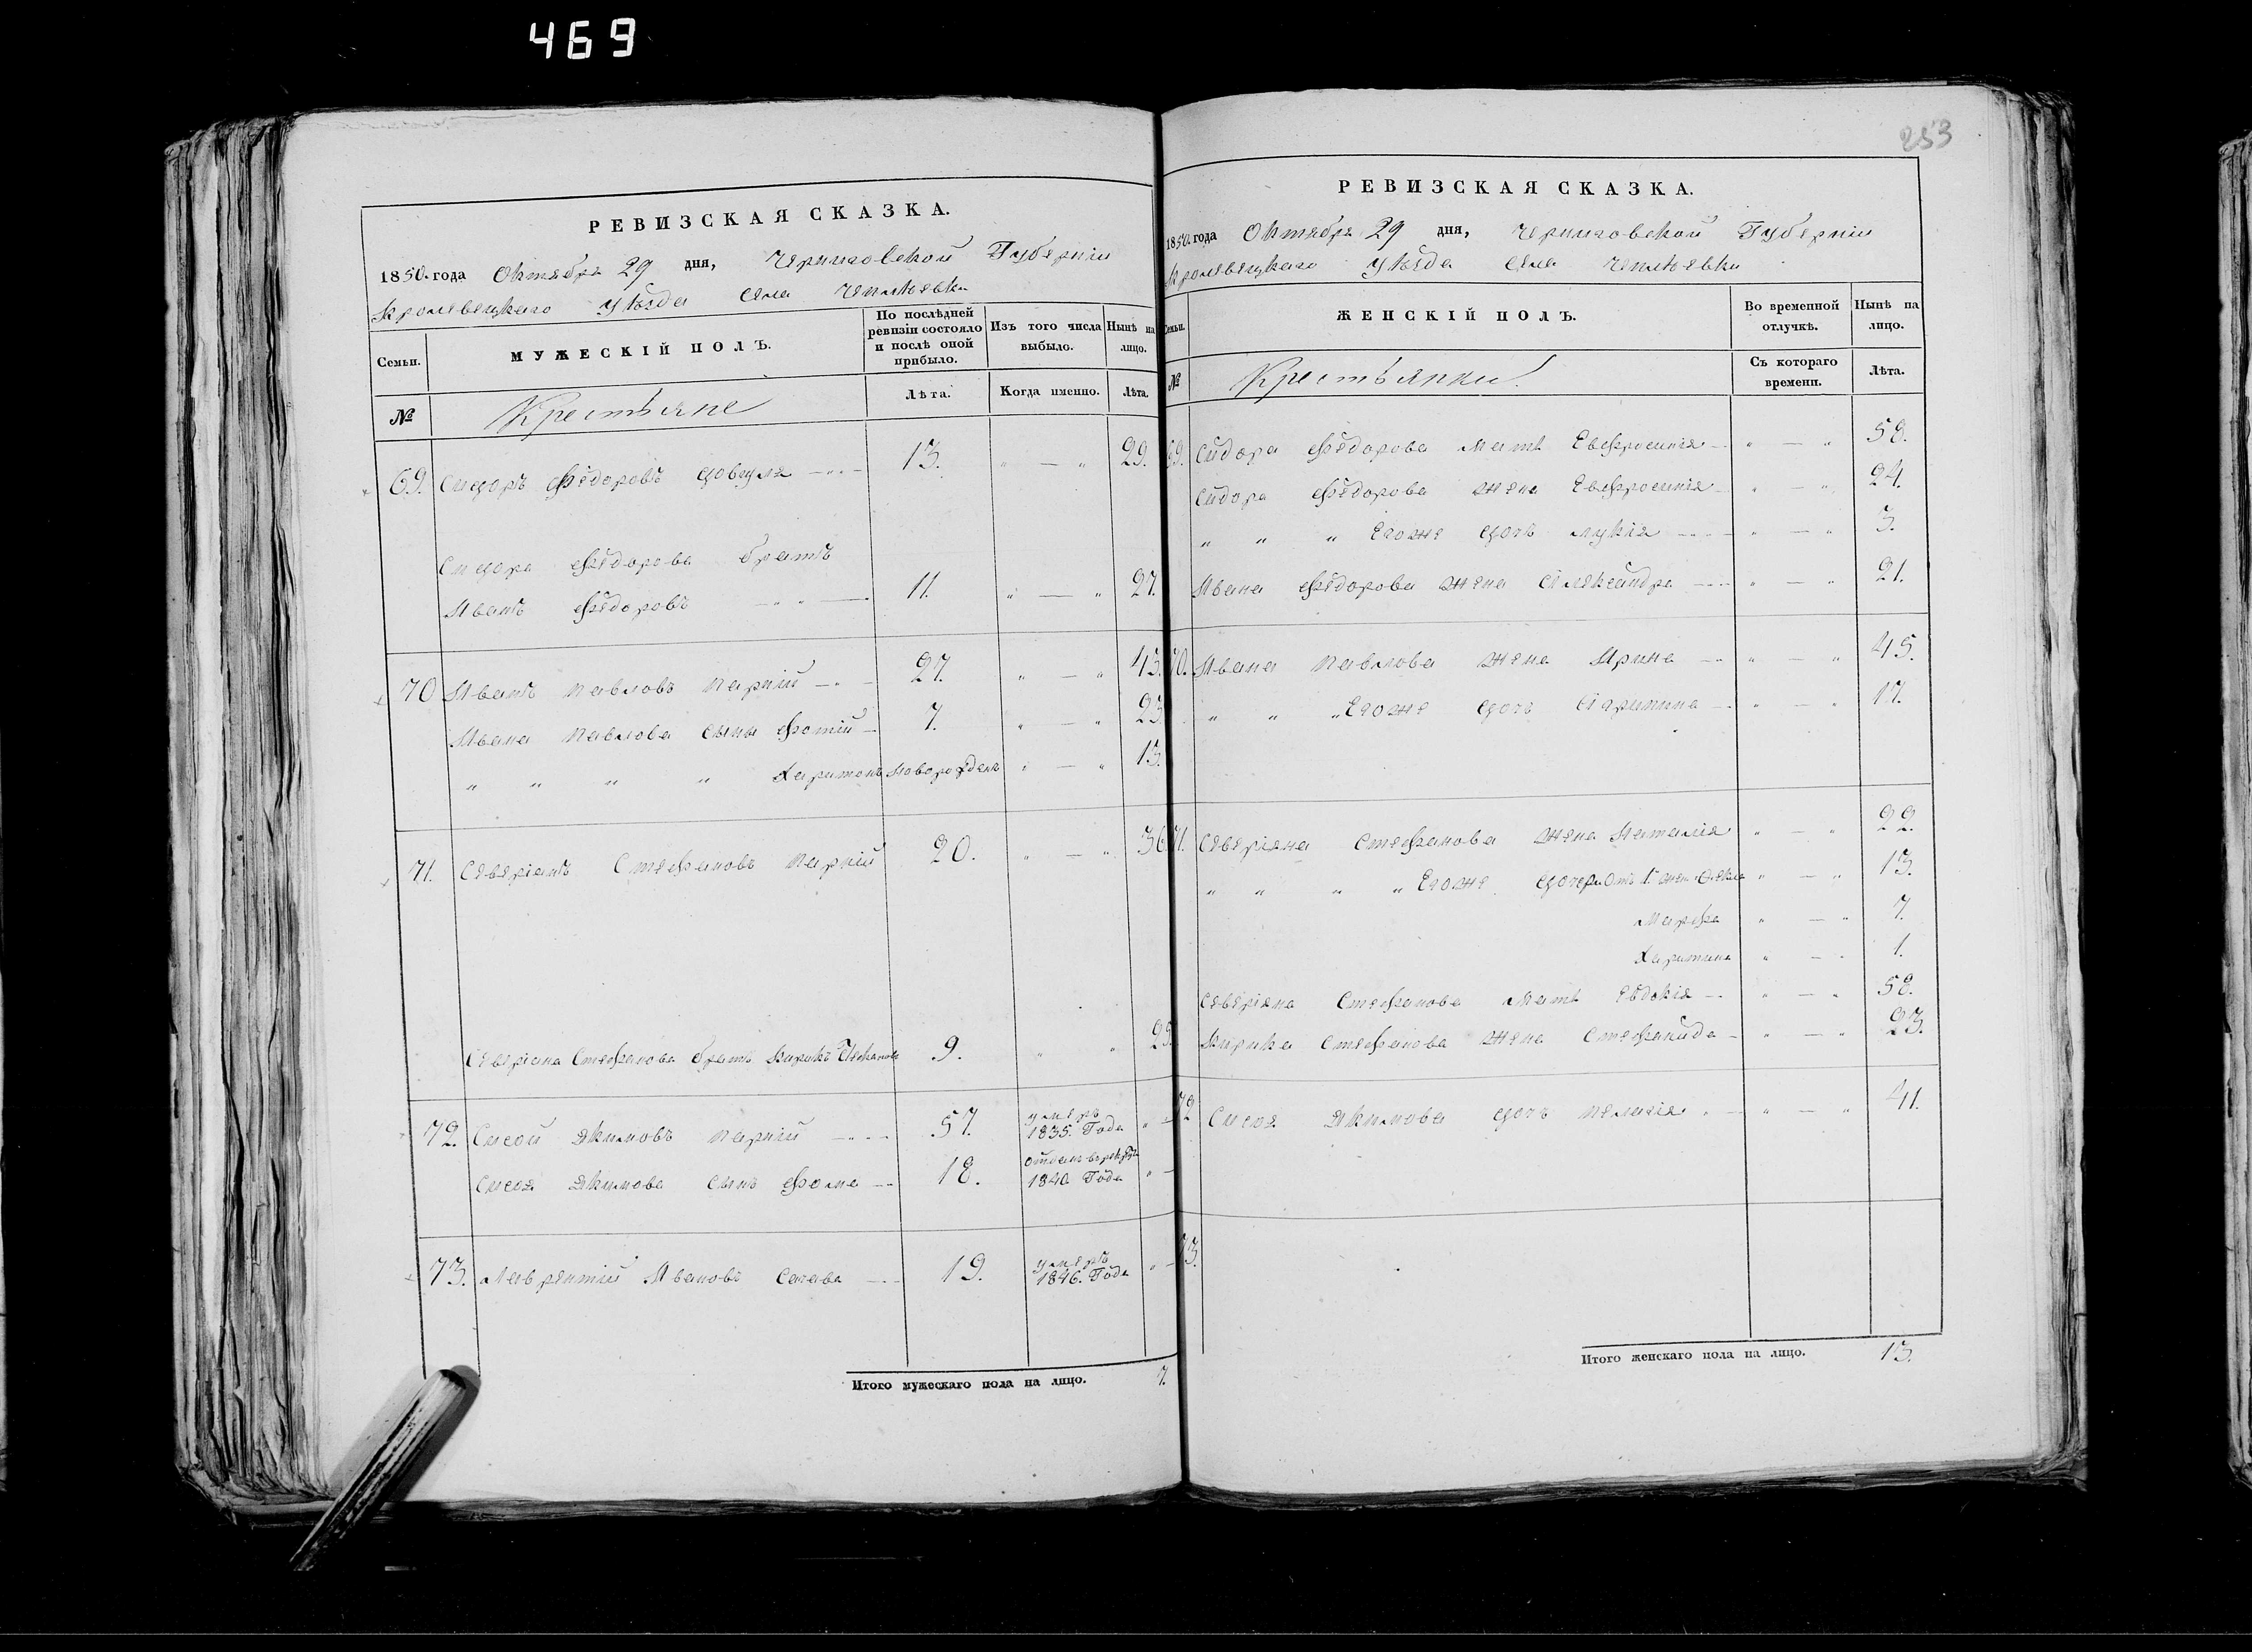 469
РЕВИЗСКАЯ СКАЗКА.
1850. года Октября 29 дня, Черниговской Губерніи
Кролевецкаго уѣзда села Чеплѣевки
Семьи.
МУЖЕСКІЙ ПОЛЪ.
По послѣдней ревизіи состояло и послѣ оной прибыло.
Изъ того числа выбыло.
Нынѣ на лицо.
№
Крестьяне
Лѣта.
Когда именно.
Лѣта.
69. Сидоръ Ѳедоровъ 13. " — " 29.
Сидора Ѳедорова братъ
Иванъ Ѳедоровъ 11. " — " 27.
70 Иванъ Павловъ Парпій 27. " — " 43.
Ивана Павлова сыны Фотій 7. " — " 23
" " " " Харитонъ новорожденъ " — " 13.
71. Северіанъ Стефановъ Парпій 20. " — " 36
Северіана Стефанова братъ Кирикъ Стефановъ 9. " " 25
72. Сисой Якимовъ Парпій 57. умеръ 1835. Года " —
Сисоя Якимова сынъ Фома 18. отданъ в рекруты 1840 Года " —
73. Лаврентій Ивановъ Сагава 19. умеръ 1846. Года " —
Итого мужескаго пола на лицо. 7.
253
РЕВИЗСКАЯ СКАЗКА.
1850. года Октября 29 дня, Черниговской Губерніи
Кролевецкаго уѣзда села Чеплѣевки
Семьи.
ЖЕНСКІЙ ПОЛЪ.
Во временной отлучкѣ.
Нынѣ на лицо.
№
Крестьянки.
Съ котораго времени.
Лѣта.
69. Сидора Ѳедорова мать Евфросинія " — " 58.
Сидора Ѳедорова жена Евфросинія " — " 24.
" " " Егоже дочь Лукія " — " 3.
Ивана Ѳедорова жена Александра " — " 21.
70. Ивана Павлова жена Ирина " — " 45.
" " " Егоже дочь " — " 17.
71. Северіяна Стефанова жена Наталія " — " 22.
" " " " Егоже дочери отъ 1. жен. Ѳекла " — " 13.
Марфа " — " 7.
Харитина " — " 1.
Северіяна Стефанова мать Евдокія " — " 58.
Кирика Стефанова жена Стефанида " — " 23.
72 Сисоя Якимова дочь Пелагія " — " 41.
73.
Итого женскаго пола на лицо. 13.